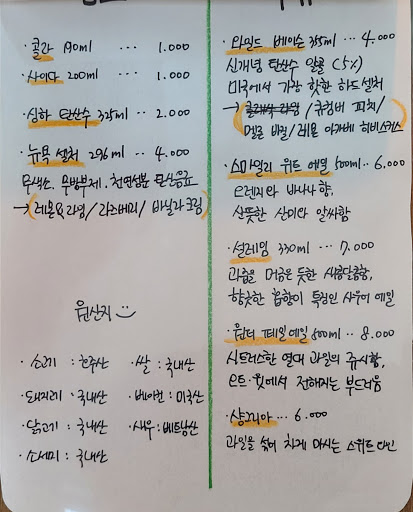 · 콜라 190ml ... 1.000
· 사이다 200ml ... 1.000
· 심하 탄산수 325ml .. 2.000
· 뉴욕 셀처 296ml .. 4.000
무색소. 무방부제. 천연성분 탄산음료
→ 레몬&라임/라즈베리/바닐라크림
원산지
· 소고기 : 호주산
· 돼지고기 : 국내산
· 닭고기 : 국내산
· 소세지 : 국내산
· 쌀 : 국내산
· 베이컨 : 미국산
· 새우 : 베트남산
· 와일드 베이슨 355ml .. 4.000
신개념 탄산수 알콜 (5%)
미국에서 가장 핫한 하드셀처
→ 클래식 라임 / 큐컴버 피치/
멜론 바질/레몬 아가베 히비스커스
· 스마일리 위트 에일 500ml .. 6.000
오렌지와 바나나향,
산뜻한 산미와 알싸함
· 설레임 330ml .. 7.000
과즙을 머금은 듯한 새콤달콤함,
향긋한 홉향이 특징인 사우어 에일
· 원더 페일에일 500ml .. 8.000
시트러스한 열대 과일의 쥬시함,
오트·윗에서 전해지는 부드러움
· 샹그리아 ... 6.000
과일을 섞어 차게 마시는 스위트 와인